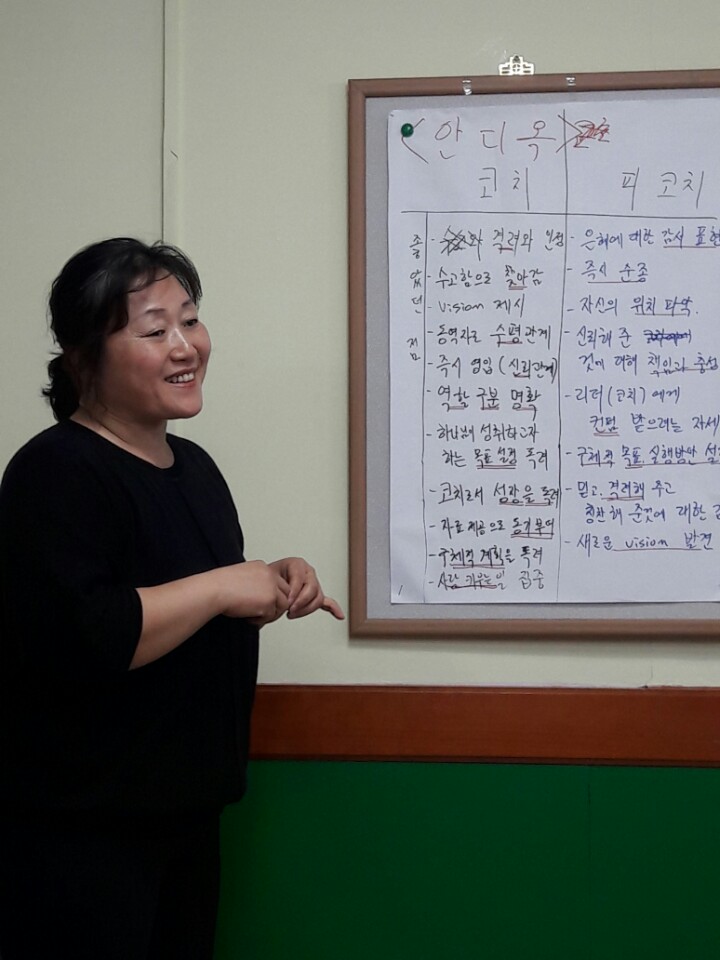 <안디옥>
코치
피코치
좋았던 점
- 격려와 인정
- 수고함으로 찾아감
- Vision 제시
- 동역자로 수평관계
- 즉시 영입 (신뢰관계)
- 역할 구분 명확
- 하나님이 성취하고자
하는 목표설정 독려
- 코치로서 성장을 독려
- 자료제공으로 동기부여
- 구체적 계획을 독려
- 사람 키우는 일 집중
- 은혜에 대한 감사 표현
- 즉시 순종
- 자신의 위치 파악.
- 신뢰해 준
것에 대해 책임과 충성
- 리더(코치)에게
컨펌 받으려는 자세
- 구체적 목표, 실행방안
- 믿고, 격려해 주고
칭찬해 준것에 대한
- 새로운 vision 발견